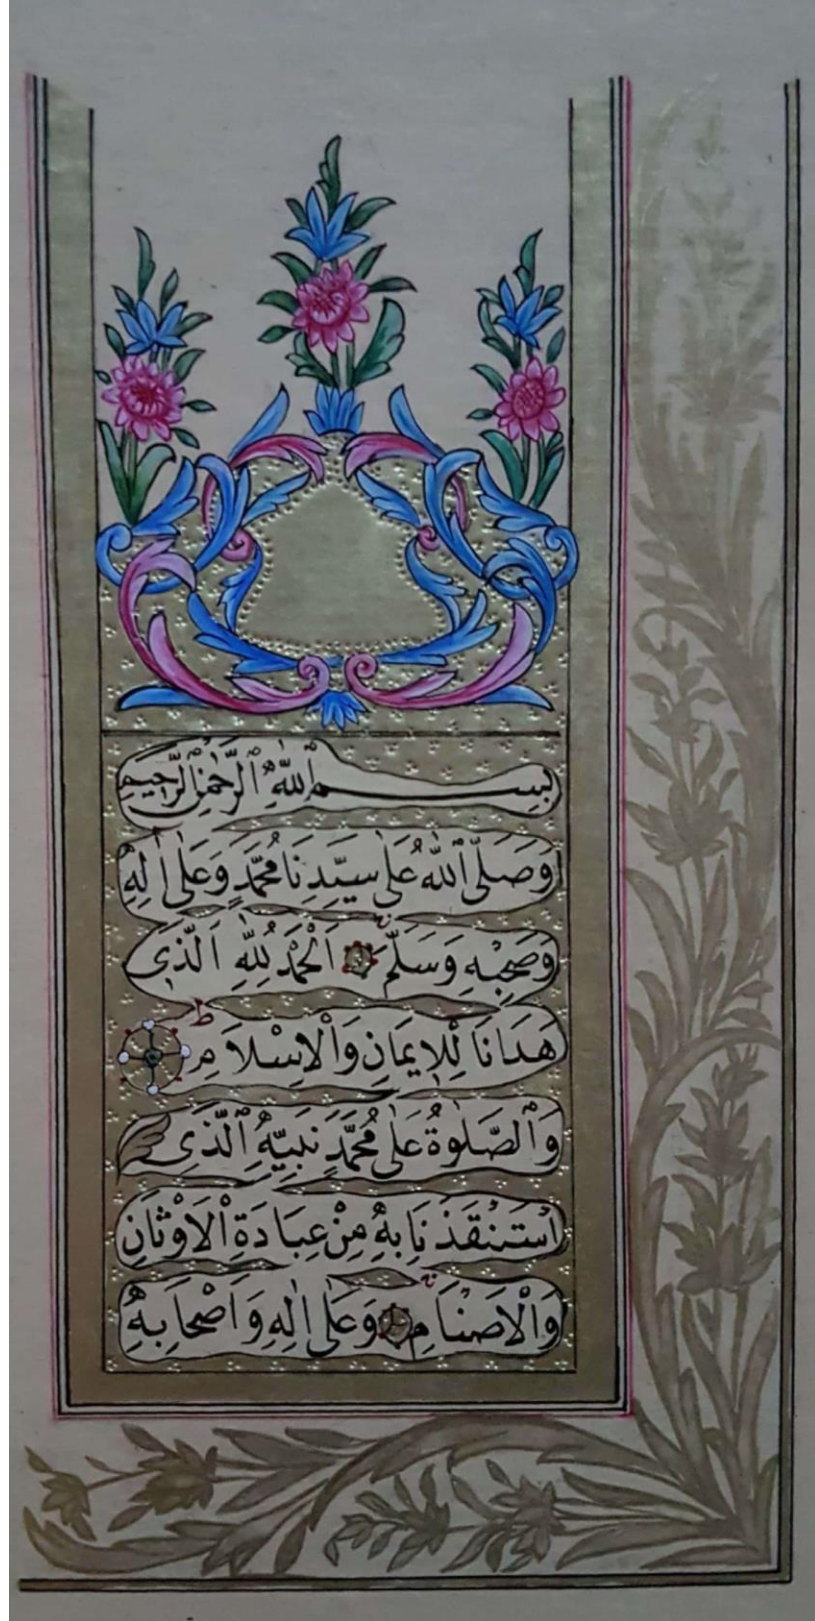 بِسْمِ ٱللّٰهِ الرَّحْمٰنِ الرَّحِيمِ
وَصَلَّى ٱللّٰهُ عَلٰى سَيِّدِنَا مُحَمَّدٍ وَعَلٰى اٰلِهِ
وَصَحْبِهِ وَسَلَّمَ اَلْحَمْدُ لِلّٰهِ الَّذٖى
هَدَانَا لِلْاِيمَانِ وَالْاِسْلَامِ ط
وَالصَّلٰوةُ عَلٰى مُحَمَّدٍ نَبِيِّهِ الَّذِى
اسْتَنْقَذَنَا بِهِ مِنْ عِبَادَةِ الْاَوْثَانِ
وَالْاَصْنَامِ وَعَلٰى اٰلِهِ وَاَصْحَابِهِ